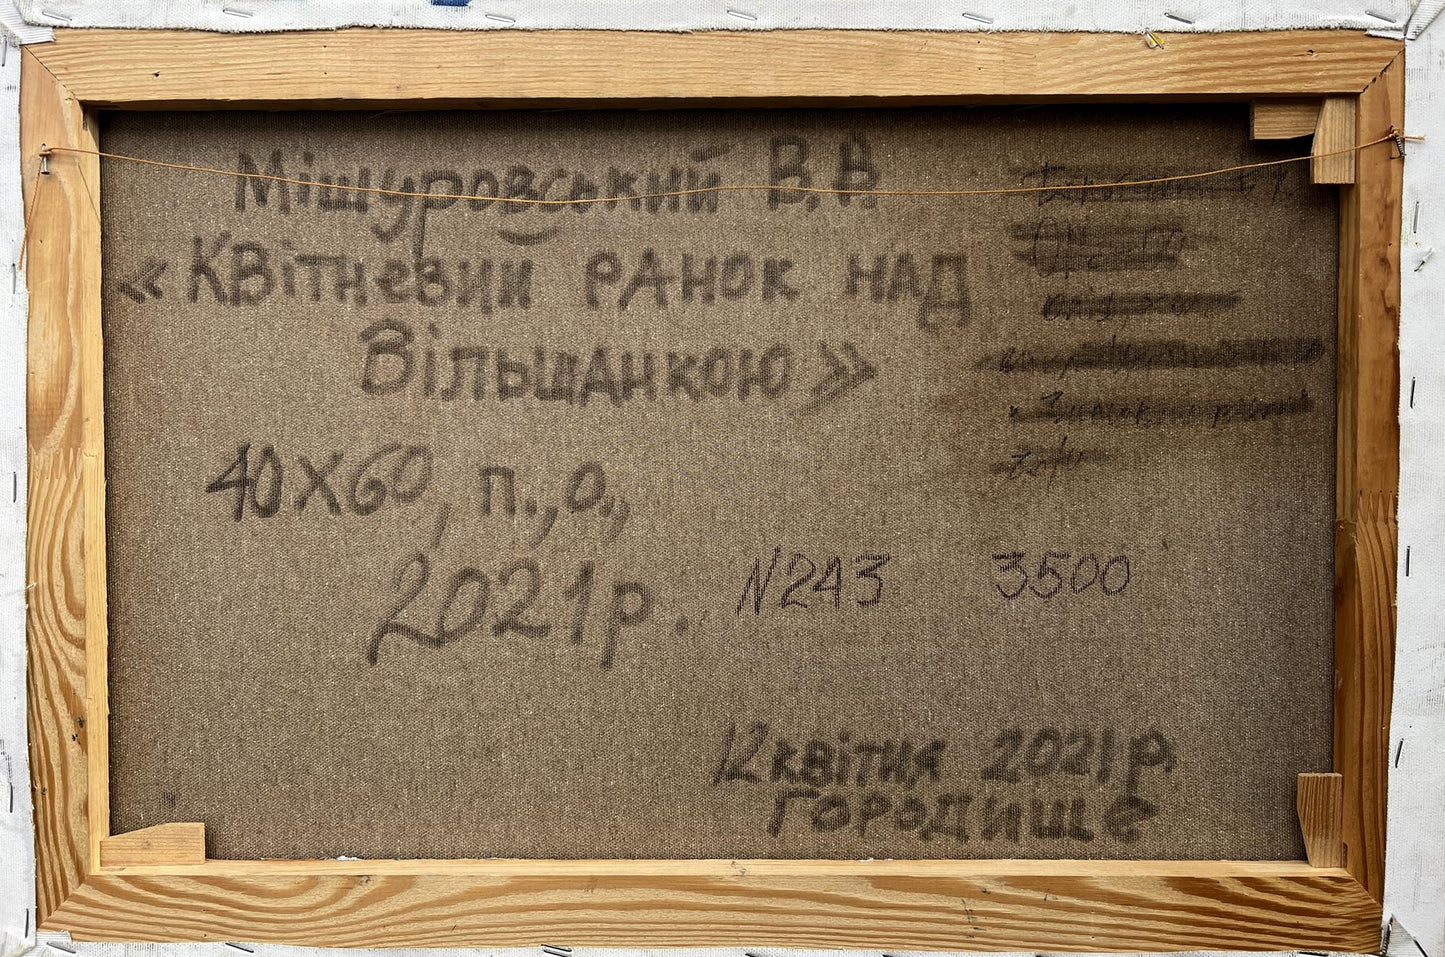 Мішуровський В.В.
«Квітневий ранок над
Вільшанкою»
40х60, п.,о.,
2021р.
N243 3500
12 квітня 2021р.
Городище